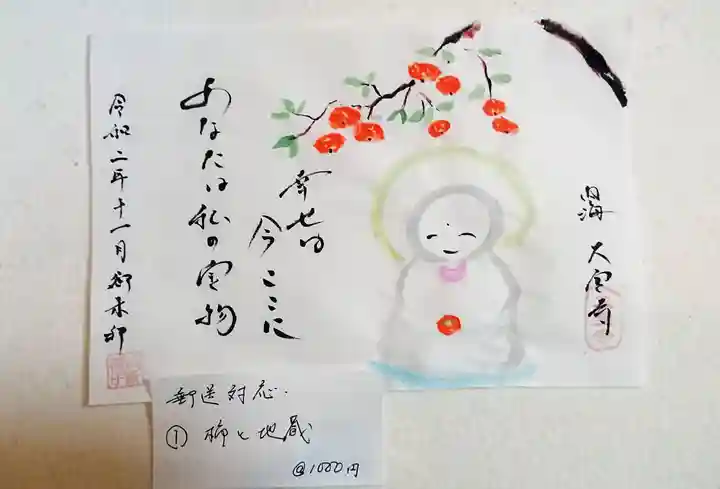 内海 大宝寺
幸せは
今ここに
あなたは私の宝物
令和二年十一月御朱印
郵送対応.
① 柿と地蔵
@1000円